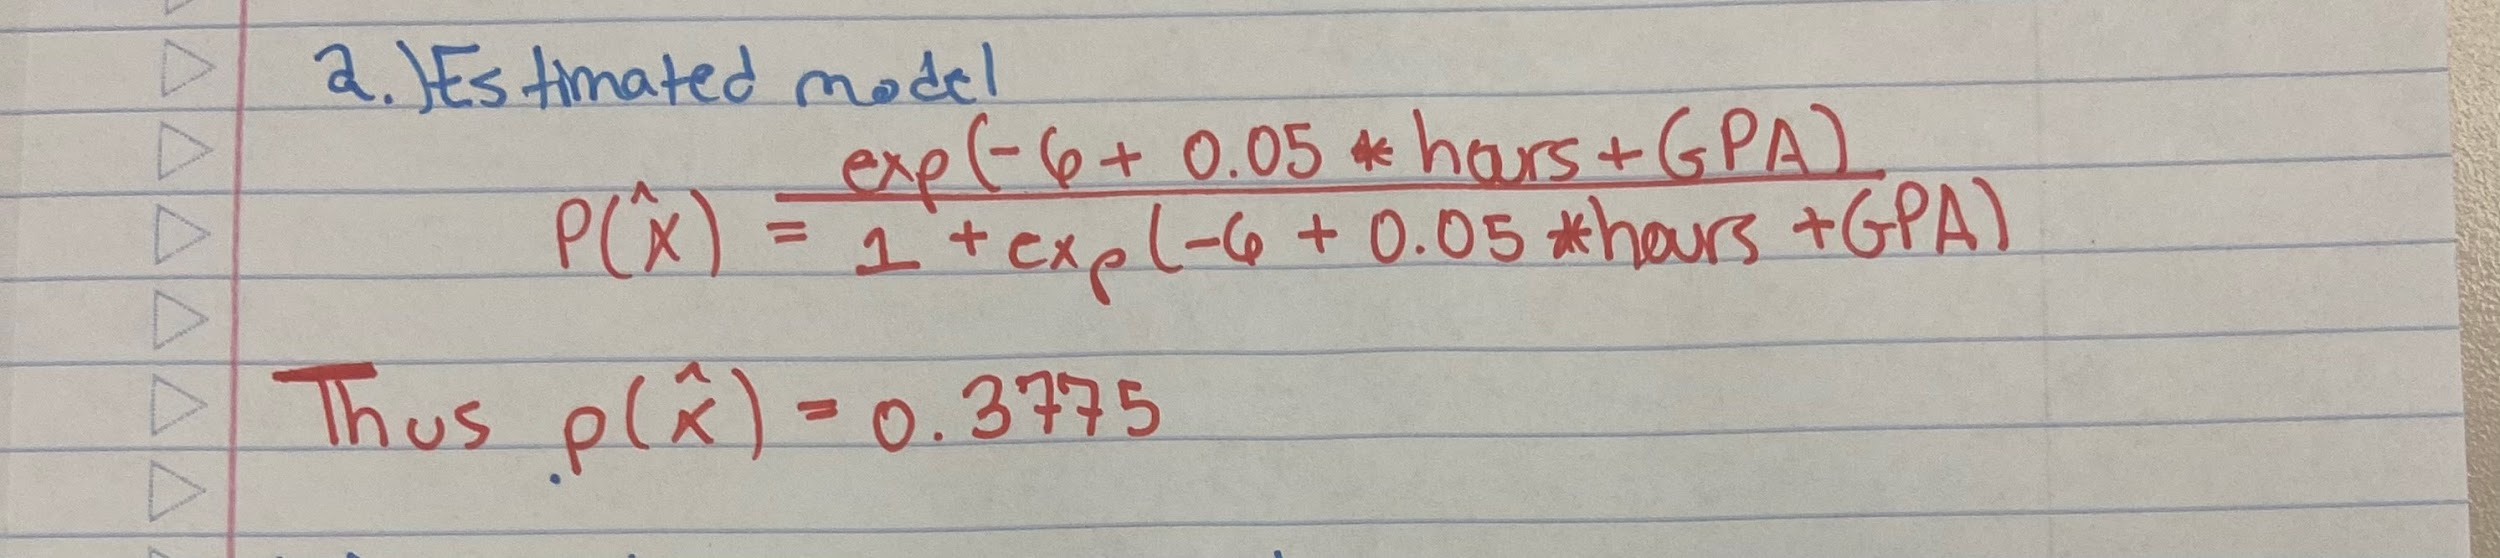 a.) Estimated model
exp(-6 + 0.05 * hours + GPA)
P(x̂) = 
1 + exp(-6 + 0.05 * hours + GPA)
Thus p(x̂) = 0.3775